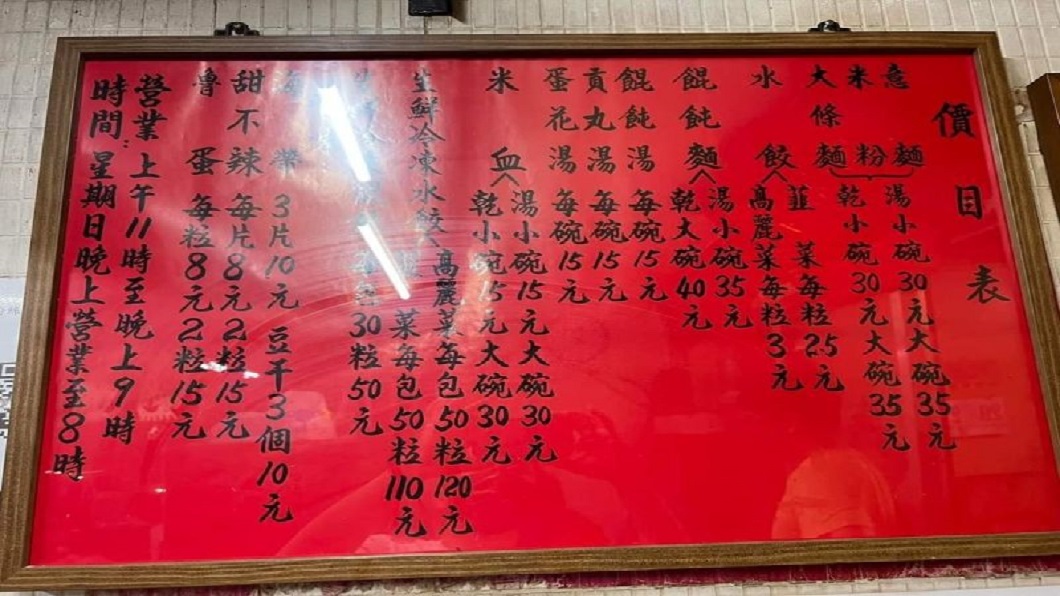 價目表
意麵
米粉
大條麵
湯小碗30元大碗35元
乾小碗30元大碗35元
水餃
韮菜每粒2.5元
高麗菜每粒3元
餛飩麵
湯小碗35元
乾大碗40元
餛飩湯每碗15元
貢丸湯每碗15元
蛋花湯每碗15元
米血
湯小碗15元大碗30元
乾小碗15元大碗30元
生鮮冷凍水餃
高麗菜每包50粒120元
菜每包50粒110元
30粒50元
海帶3片10元 豆干3個10元
甜不辣每片8元2粒15元
魯蛋每粒8元2粒15元
營業上午11時至晚上9時
時間:星期日晚上營業至8時